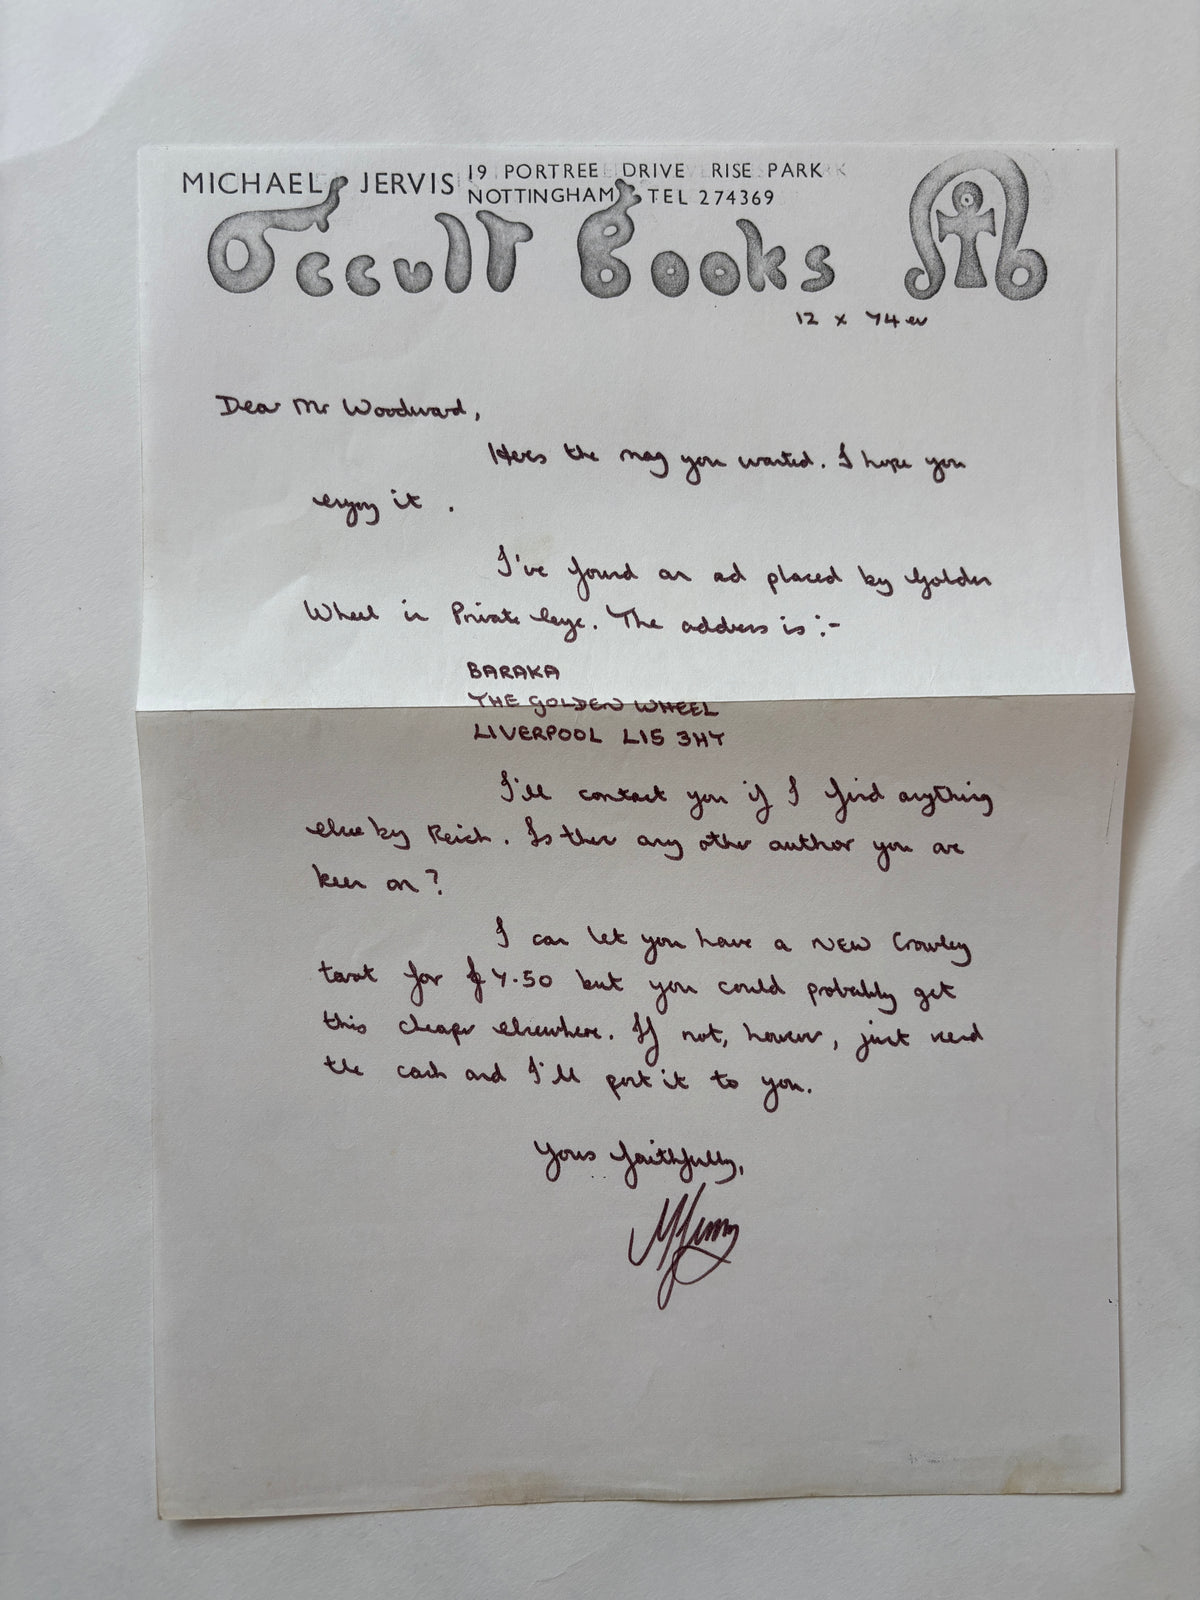 MICHAEL JERVIS 19 PORTREE DRIVE RISE PARK
NOTTINGHAM TEL 274369
Occult Books
12 x 74 ev
Dear Mr Woodward,
Heres the mag you wanted. I hope you
enjoy it.
I've found an ad placed by Golden
Wheel in Private Eye. The address is :-
BARAKA
THE GOLDEN WHEEL
LIVERPOOL L15 3HT
I'll contact you if I find anything
else by Reich. Is ther any other author you are
keen on?
I can let you have a NEW Crowley
tarot for £7.50 but you could probably get
this cheaper elsewhere. If not, however, just send
the cash and I'll post it to you.
Yours faithfully,